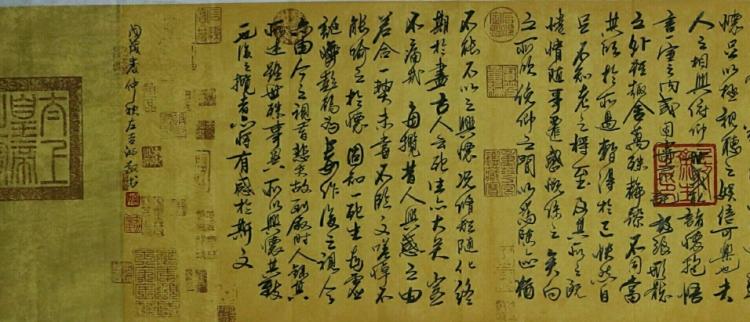 懷足以極視聽之娛信可樂也夫
人之相與俯仰一世或取諸懷抱悟
言一室之內或因寄所託放浪形骸
之外雖趣舍萬殊靜躁不同當
其欣於所遇暫得於己快然自
足不知老之將至及其所之既
惓情隨事遷感慨係之矣向
之所欣俛仰之間以為陳迹猶
不能不以之興懷況脩短隨化終
期於盡古人云死生亦大矣豈
不痛哉每攬昔人興感之由
若合一契未嘗不臨文嗟悼不
能喻之於懷固知一死生為虛
誕齊彭殤為妄作後之視今
亦由今之視昔悲夫故列敘時人錄其
所述雖世殊事異所以興懷其致
一也後之攬者亦將有感於斯文
太上皇帝